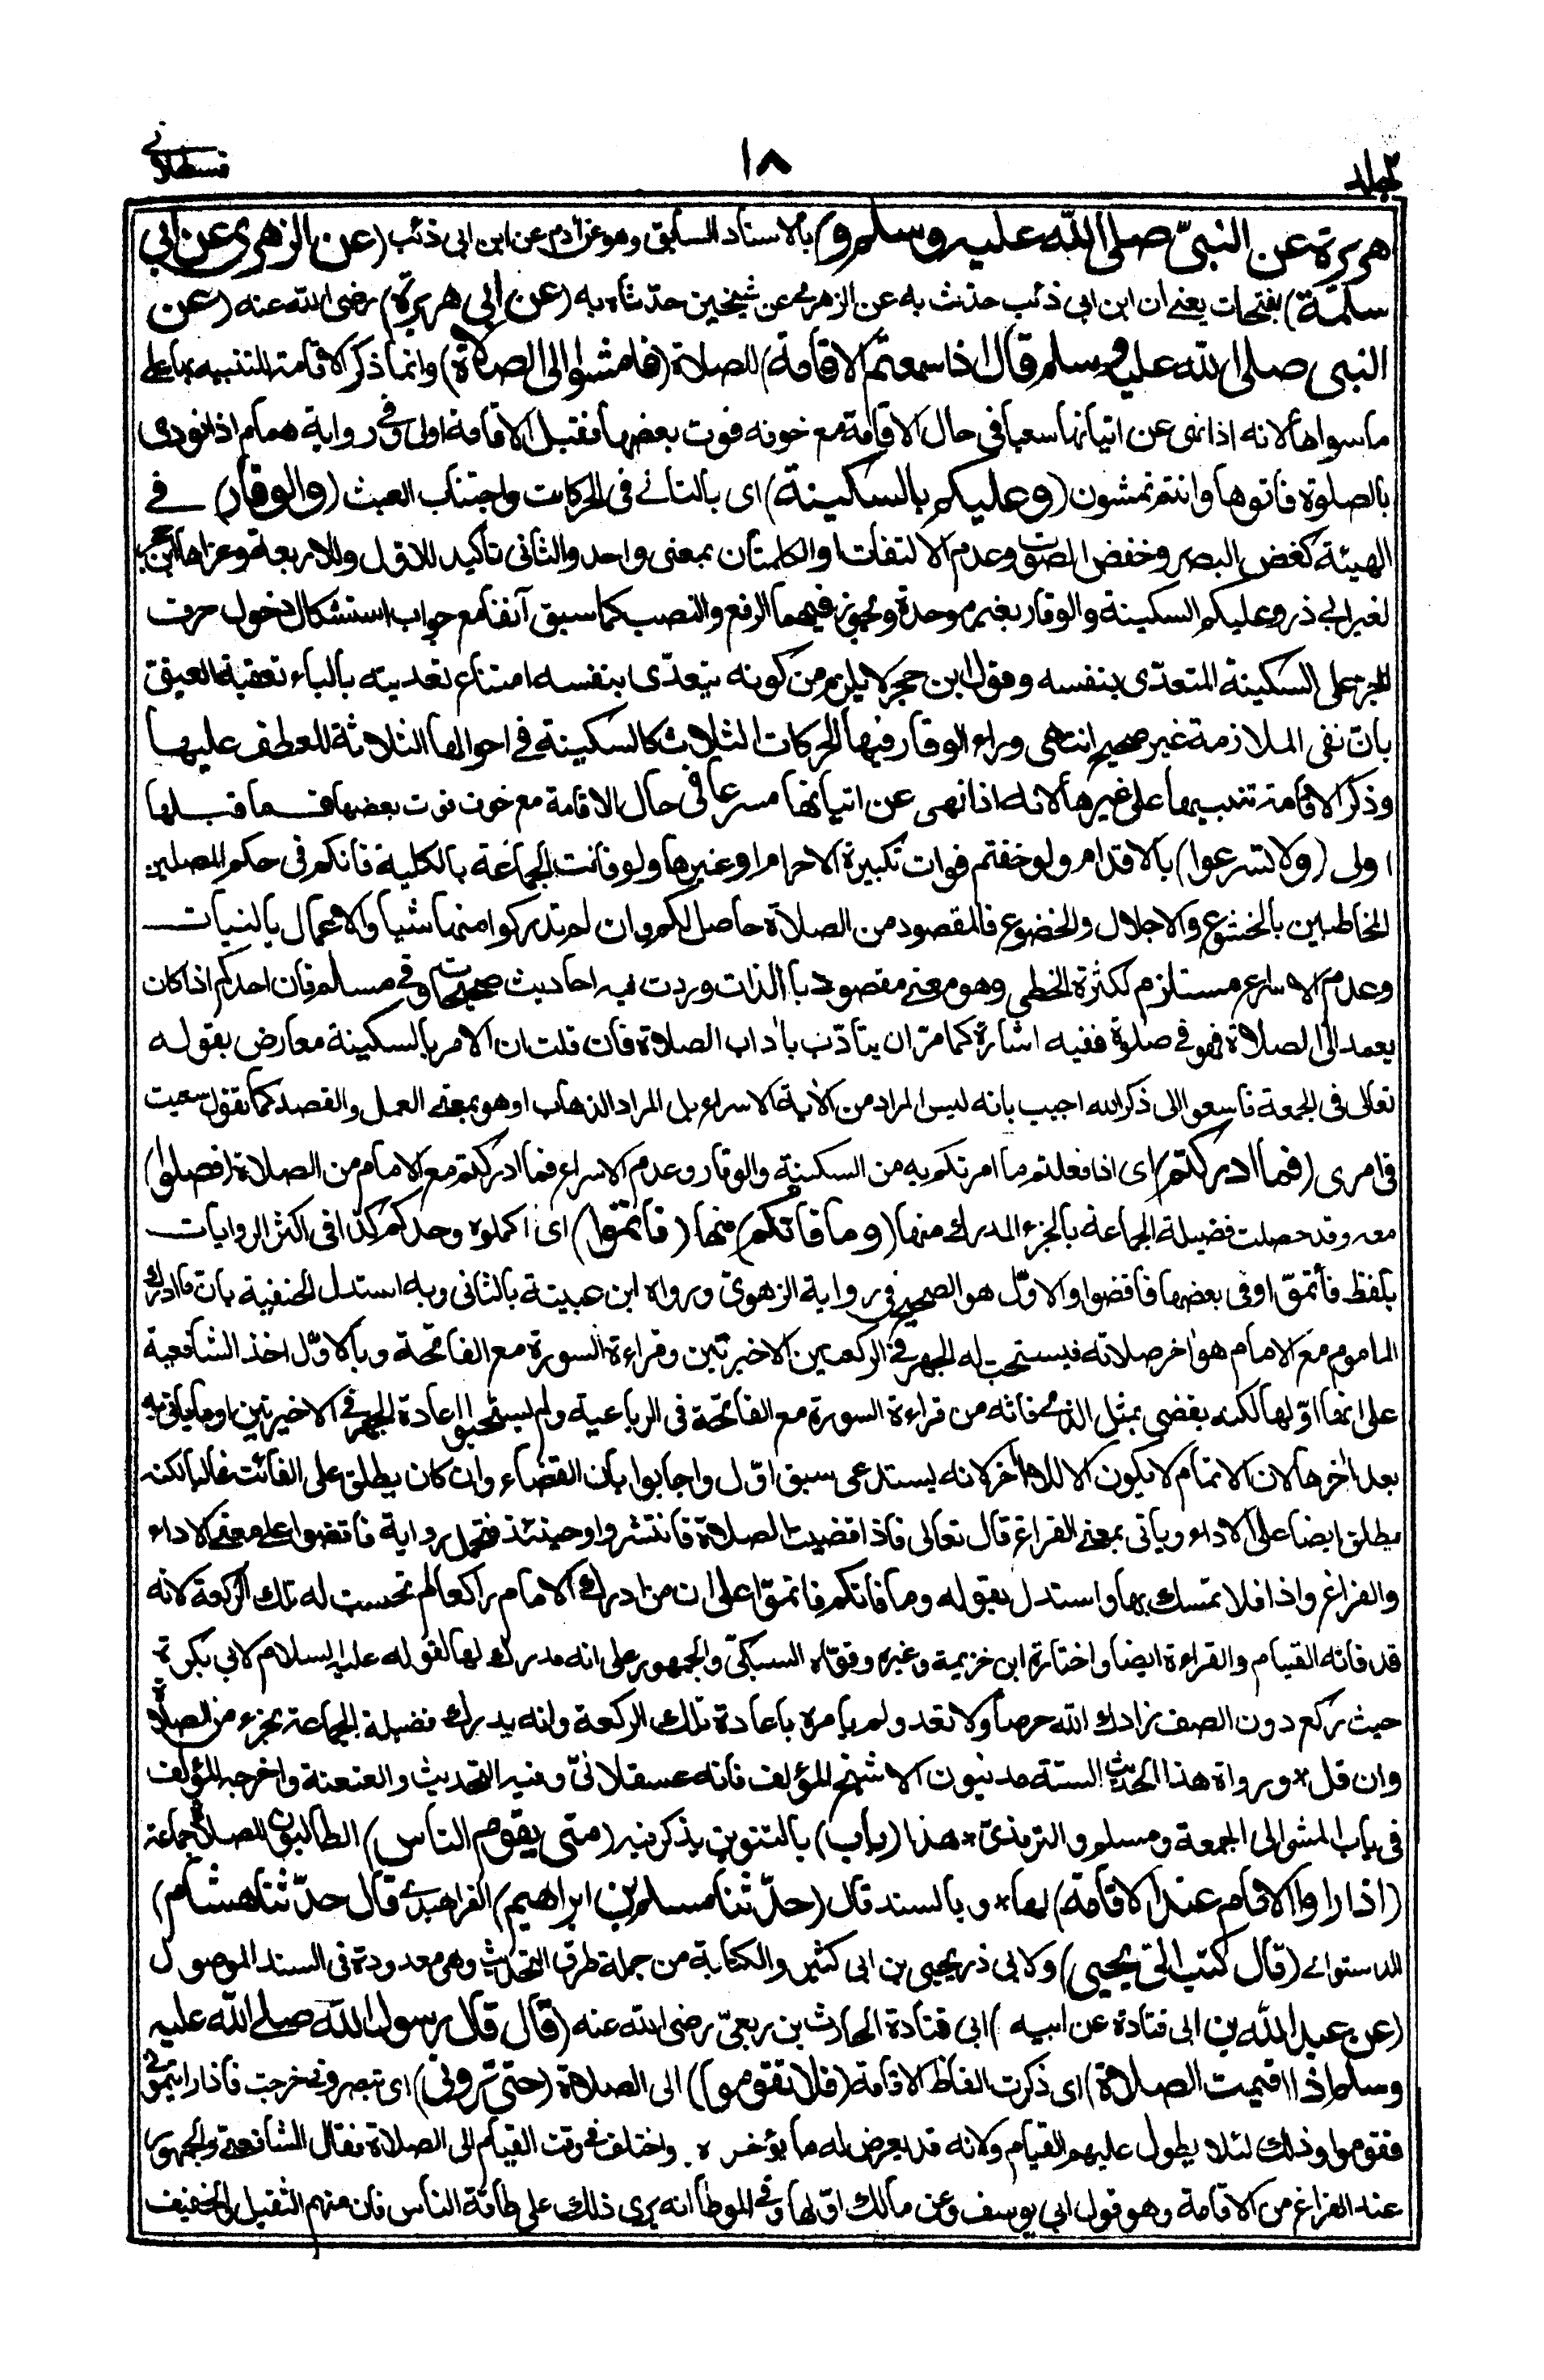 جلد٢
١٨
قسطلاني
هريرة عن النبىّ صلى الله عليه وسلم و) بالاسناد السابق وهو عن آدم عن ابن ابى ذئب (عن الزهرى عن ابي
سلمة) بفتحات يعنى ان ابن ابى ذئب حدّث به عن الزهرى عن شيخين حدّثاه به (عن ابي هريرة) رضى الله عنه (عن
النبى صلى الله عليه وسلم قال اذا سمعتم الاقامة) للصلاة (فامشوا الى الصلاة) وانما ذكر الاقامة للتنبيه بها على
ما سواها لانه اذا نهى عن اتيانها سعيا فى حال الاقامة مع خوفه فوت بعضها فقبل الاقامة اولى وفى رواية همام اذا نودى
بالصلوة فاتوها وانتم تمشون (وعليكم بالسكينة) اى بالتانى فى الحركات واجتناب العبث (والوقار) فى
الهيئة كغض البصر وخفض الصوت وعدم الالتفات او الكلمتان بمعنى واحد والثانى تاكيد للاول وللاربعة وعزاها ابن حجر
لغير ابى ذر وعليكم السكينة والوقار بغير موحدة ويجوز فيهما الرفع والنصب كما سبق آنفا مع جواب استشكال دخول حرف
الجر على السكينة المتعدّى بنفسه وقول ابن حجر لا يلزم من كونه يتعدّى بنفسه امتناع تعديته بالباء تعقبه العينى
بان نفى الملازمة غير صحيح انتهى وراء الوقار فيها الحركات الثلاث كالسكينة فى احوالها الثلاثة للعطف عليها
وذكر الاقامة تنبيها على غيرها لانه اذا نهى عن اتيانها مسرعا فى حال الاقامة مع خوف فوت بعضها فما قبلها
اولى (ولا تسرعوا) بالاقدام ولو خفتم فوات تكبيرة الاحرام او غيرها ولو فاتت الجماعة بالكلية فانكم فى حكم المصلين
المخاطبين بالخشوع والاجلال والخضوع فالمقصود من الصلاة حاصل لكم وان لم تدركوا منها شيا والاعمال بالنيات
وعدم الاسراع مستلزم لكثرة الخطى وهو معنى مقصود بالذات وردت فيه احاديث صحيحة وفى مسلم فان احدكم اذا كان
يعمد الى الصلاة فهو فى صلوة ففيه اشارة كما مرّ ان يتادّب بآداب الصلاة فان قلت ان الامر بالسكينة معارض بقوله
تعالى فى الجمعة فاسعوا الى ذكر الله اجيب بانه ليس المراد من الآية الاسراع بل المراد الذهاب او هو بمعنى العمل والقصد كما تقول سعيت
فى امرى (فما ادركتم) اى اذا فعلتم ما امرتكم به من السكينة والوقار وعدم الاسراع فما ادركتم مع الامام من الصلاة (فصلوا)
معه وقد حصلت فضيلة الجماعة بالجزء المدرك منها (وما فاتكم) منها (فاتموا) اى اكملوه وحدكم كذا فى اكثر الروايات
بلفظ فأتمّوا وفى بعضها فاقضوا والاوّل هو الصحيح فى رواية الزهرىّ ورواه ابن عيينة بالثانى وبه استدل الحنفية بان ما ادرك
الماموم مع الامام هو آخر صلاته فيستحب له الجهر فى الركعتين الاخيرتين وقراءة السورة مع الفاتحة وبالاوّل اخذ الشافعية
على انها اوّلها لكنه يقضى بمثل الذى فاته من قراءة السورة مع الفاتحة فى الرباعية ولم يستحبوا اعادة الجهر فى الاخيرتين وما ياتى به
بعد آخرها لان الاتمام لا يكون الا للآخر لانه يستدعى سبق اوّل واجابوا بان القضاء وان كان يطلق على الفائت غالبا لكنه
يطلق ايضا على الاداء وياتى بمعنى الفراغ قال تعالى فاذا قضيت الصلاة فانتشروا وحينئذ فتحمل رواية فاقضوا على معنى الاداء
والفراغ واذا فلا تمسك بها واستدل بقوله وما فاتكم فاتمّوا على ان من ادرك الامام راكعا لم تحسب له تلك الركعة لانه
قد فاته القيام والقراءة ايضا واختاره ابن خزيمة وغيره وقوّاه السبكىّ والجمهور على انه مدرك لها لقوله عليه السلام لابي بكرة
حيث ركع دون الصف زادك الله حرصا ولا تعد ولم يامره باعادة تلك الركعة وانه يدرك فضيلة الجماعة بجزء من الصلاة
وان قل * ورواة هذا الحديث الستة مدنيون الا شيخ المؤلف فانه عسقلانىّ وفيه التحديث والعنعنة واخرجه المؤلف
فى باب المشى الى الجمعة ومسلم والترمذىّ * هذا (باب) بالتنوين يذكر فيه (متى يقوم الناس) الطالبون للصلاة جماعة
(اذا راوا الامام عند الاقامة) لها * وبالسند قال (حدّثنا مسلم بن ابراهيم) الفراهيدى قال حدّثنا هشام)
الدستوائى (قال كتب الىّ يحيى) ولابي ذر يحيى بن ابى كثير والكتابة من جملة طرق التحديث وهى معدودة فى السند الموصول
(عن عبد الله بن ابى قتادة عن ابيه) ابى قتادة الحارث بن ربعىّ رضى الله عنه (قال قال رسول الله صلى الله عليه
وسلم اذا اقيمت الصلاة) اى ذكرت الفاظ الاقامة (فلا تقوموا) الى الصلاة (حتى ترونى) اى تبصرونى خرجت فاذا رايتمونى
فقوموا وذلك لئلا يطول عليهم القيام ولانه قد يعرض له ما يؤخره. واختلف فى وقت القيام الى الصلاة فقال الشافعى والجمهور
عند الفراغ من الاقامة وهو قول ابي يوسف وعن مالك اوّلها وفى الموطا انه يرى ذلك على طاقة الناس فان منهم الثقيل والخفيف